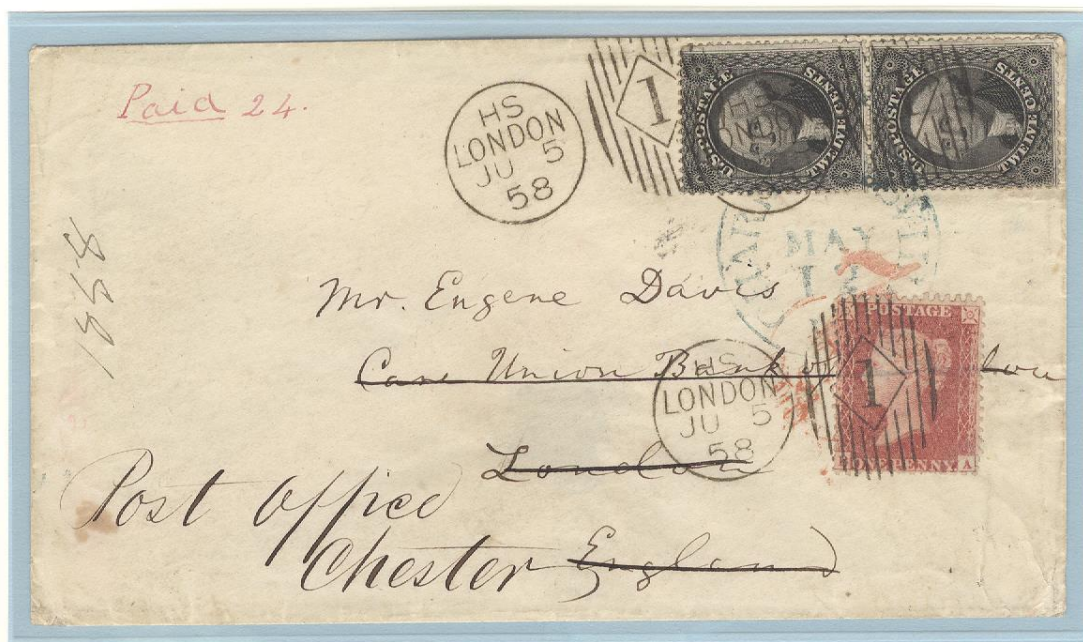 Paid 24.
HS
LONDON
JU 5
58
1
U.S. POSTAGE
TWELVE CENTS
U.S. POSTAGE
TWELVE CENTS
MAY
1858
Mr. Eugene Davis
Care Union Bank of
London
HS
LONDON
JU 5
58
POSTAGE
1
ONE PENNY A
Post Office
Chester England